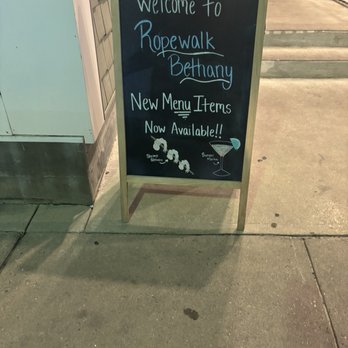 Welcome to
Ropewalk
Bethany
New Menu Items
Now Available!!